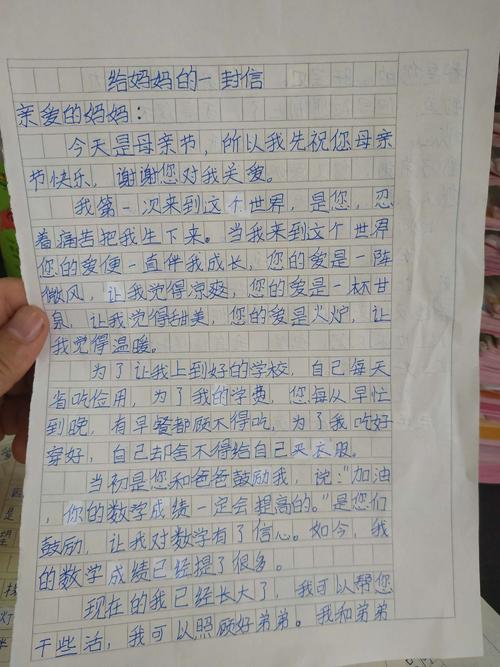 给妈妈的一封信
亲爱的妈妈：
今天是母亲节，所以我先祝您母亲
节快乐，谢谢您对我关爱。
我第一次来到这个世界，是您，忍
着痛苦把我生下来。当我来到这个世界
您的爱便一直伴我成长，您的爱是一阵
微风，让我觉得凉爽，您的爱是一杯甘
泉，让我觉得甜美，您的爱是火炉，让
我觉得温暖。
为了让我上到好的学校，自己每天
省吃俭用，为了我的学费，您每从早忙
到晚，有早餐都顾不得吃，为了我吃好
穿好，自己却舍不得给自己买衣服。
当初是您和爸爸鼓励我，说："加油
，你的数学成绩一定会提高的。"是您们
鼓励，让我对数学有了信心。如今，我
的数学成绩已经提了很多。
现在的我已经长大了，我可以帮您
干些活，我可以照顾好弟弟。我和弟弟